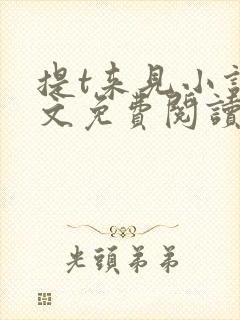 提t来见小說
文免費閱讀
光頭弟弟